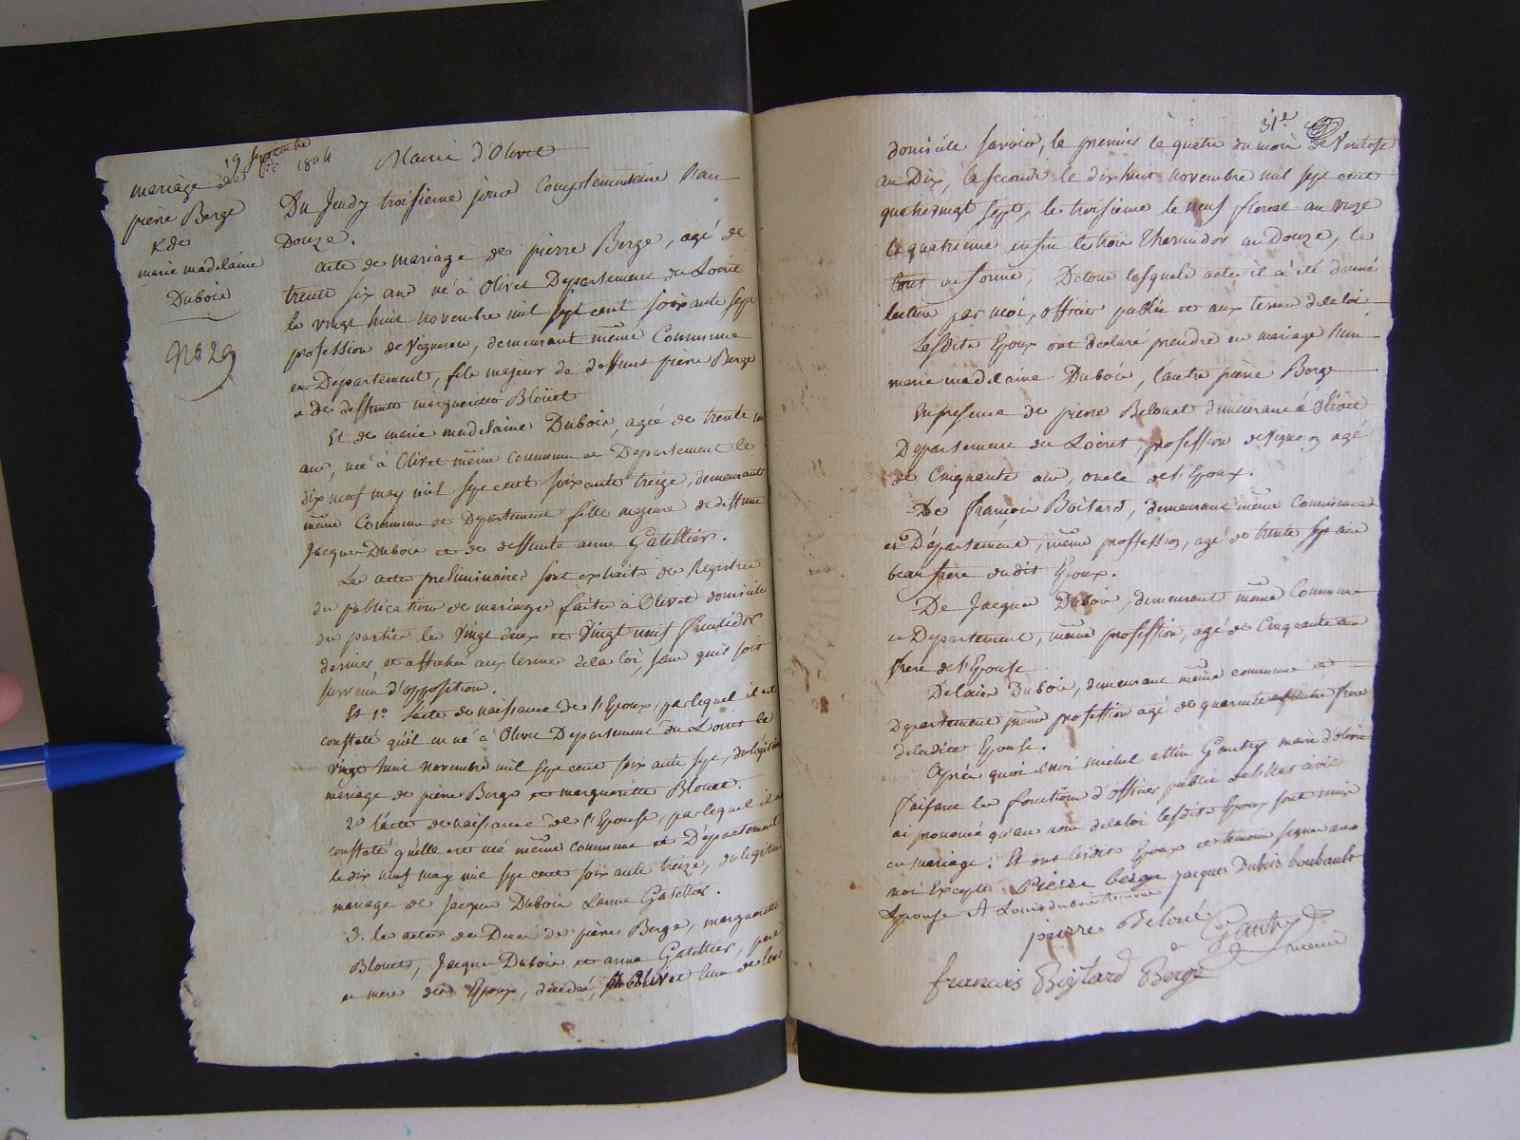 19 septembre 1804
mariage de
pierre Berge
& de
marie madelaine
Duboic
No 29
Mairie d'Olivet
Du Jeudy troisieme jour Complementaire l'an
Douze.
acte de mariage de pierre Berge, agé de
trente six ans né à Olivet Departement du Loiret
le vingt huit novembre mil sept cent soixante sept
profession de Vigneron, demeurant même Commune
et Departement, fils majeur de deffunt pierre Berge
& de deffunte marguerite Bloüet
Et de marie madelaine Duboic, agée de trente un
ans, née à Olivet même commune et Departement le
dix neuf may mil sept cent soixante treize, demeurante
même Commune et Departement fille majeure de deffunt
Jacque Duboic et de deffunte anne Gatellier.
Les actes preliminaires sont extraits des Registres
de publications de mariage faites à Olivet domicile
des parties les Vingt deux et Vingt neuf fructidor
dernier et affichés aux termes de la loi, sans quil soit
survenu d'opposition.
Et 1o. l'acte de naissance de l'Epoux, par lequel il est
constaté qu'il est né à Olivet Departement du Loiret le
vingt huit novembre mil sept cent soixante sept, du légitime
mariage de pierre Berge et marguerite Blouet.
2o l'acte de naissance de l'Epouse, par lequel il est
constaté qu'elle est née même commune et Département
le dix neuf may mil sept cent soixante treize, du legitime
mariage de Jacque Duboic & anne Gatellier.
3. les actes de Deces de pierre Berge, marguerite
Blouet, Jacque Duboic et anne Gatellier, pere
et mere des Epoux, décedés, à Olivet lieu de leur
31e.
domicile savoir, le premier le quatre du mois de Ventose
an Dix, la seconde le dix huit novembre mil sept cent
quatrevingt sept, le troisieme le neuf floreal an onze
la quatrieme enfin le trois thermidor an Douze, le
tout en forme, De tous lesquels actes il a été donné
lecture par moi, officier public et aux termes de la loi
Lesdits Epoux ont declaré prendre en mariage l'un
marie madelaine Duboic, l'autre pierre Berge
En presence de pierre Belouet demeurant à Olivet
Departement du Loiret profession de vigneron agé
de Cinquante ans, oncle de l'Epoux.
De françois Boitard, demeurant même Commune
et Département, même proffession, agé de trente sept ans
beau frere dudit Epoux.
De Jacque Duboic, demeurant même Commune
et Departement, même proffession, agé de Cinquante ans
frere de l'Epouse
De Louis Duboic, demeurant même commune et
Departement même profession agé de quarante frere
de laditte Epouse.
Après quoi moi michel Gautry maire d'olivet
faisant les fonctions d'officier public de l'etat civil
ai prononcé qu'au nom de la loi lesdits Epoux sont unis
en mariage; Et ont lesdits Epoux et temoins signé avec
moi Excepté Pierre berge jacques Dubois boubault
Lepouse & Louis duboic
pierre Beloué
Gautry
maire
francois Boitard Berge